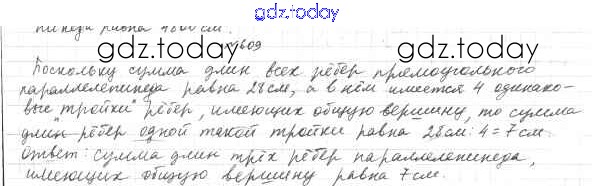 gdz.today
№609
gdz.today
Поскольку сумма длин всех рёбер прямоугольного
параллелепипеда равна 28см, а в нём имеется 4 одинако-
вые "тройки" рёбер, имеющих общую вершину, то сумма
длин рёбер одной такой тройки равна 28см:4=7см.
Ответ: сумма длин трёх рёбер параллелепипеда,
имеющих общую вершину равна 7см.
gdz.today
gdz.today